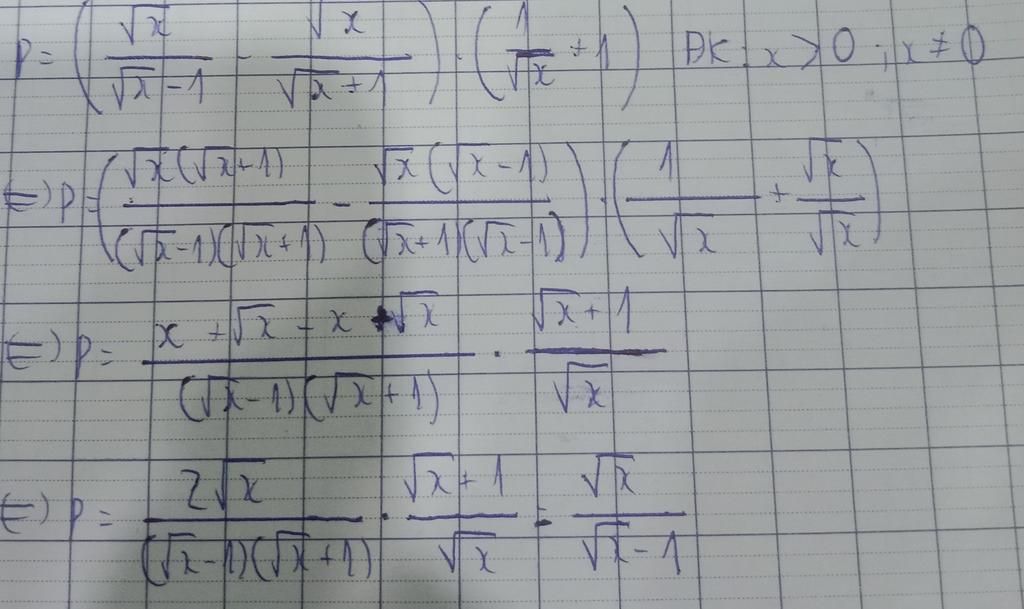 P = (√x/(√x-1) - √x/(√x+1)) · (1/√x + 1) ĐK: x > 0 ; x ≠ 0
⇔) P = (√x(√x+1)/((√x-1)(√x+1)) - √x(√x-1)/((√x+1)(√x-1))) · (1/√x + √x/√x)
⇔) P = (x + √x - x + √x)/((√x-1)(√x+1)) · (√x+1)/√x
⇔) P = 2√x/((√x-1)(√x+1)) · (√x+1)/√x = √x/(√x-1)